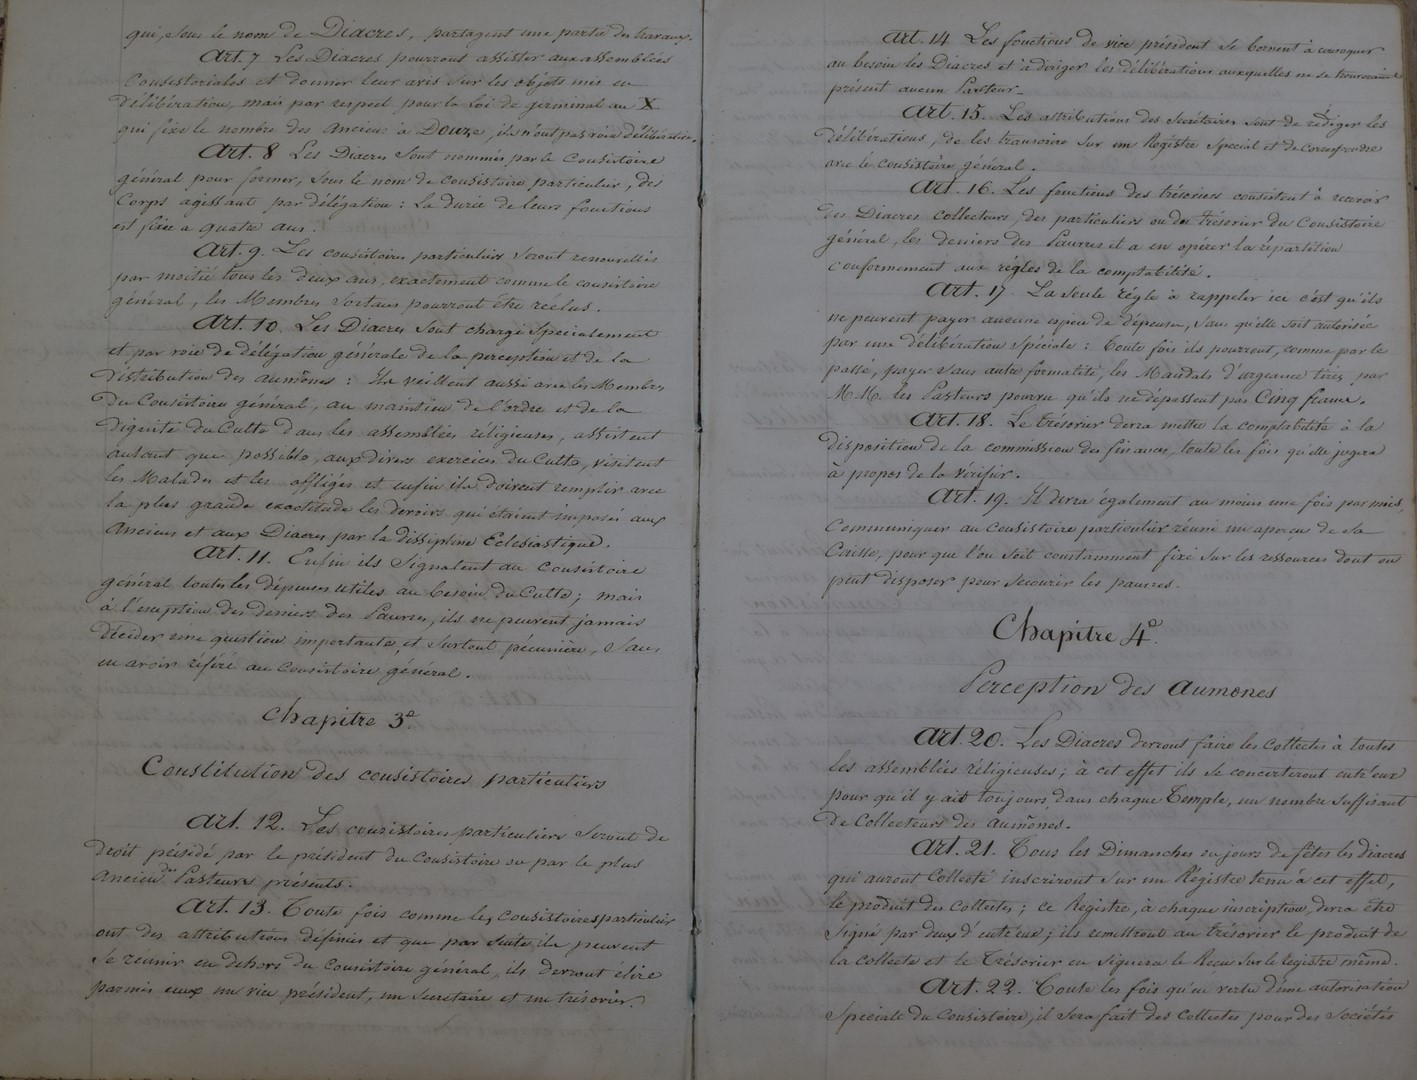 qui, sous le nom de Diacres, partagent une partie des travaux.
Art. 7 Les Diacres pourront assister aux assemblées
Consistoriales et donner leur avis sur les objets mis en
délibération, mais par respect pour la Loi de germinal an X
qui fixe le nombre des Anciens à Douze, ils n'ont pas voix délibérative.
Art. 8 Les Diacres sont nommés par le Consistoire
général pour former, sous le nom de Consistoire particulier, des
Corps agissant par délégation : La durée de leurs fonctions
est fixée a quatre ans.
Art. 9. Les consistoires particuliers seront renouvellés
par moitié tous les deux ans, exactement comme le consistoire
général, les Membres sortans pourront être réélus.
Art. 10. Les Diacres sont chargé spécialement
et par voie de délégation générale de la perception et de la
distribution des aumônes : Ils veillent aussi avec les Membres
du Consistoire général, au maintien de l'ordre et de la
dignité du Culte dans les assemblées réligieuses, assistent
autant que possible, aux divers exercices du Culte, visitent
les Malades et les affligés et enfin ils doivent remplir avec
la plus grande exactitude les devoirs qui étaient imposés aux
Anciens et aux Diacres par la dissipline Eclesiastique.
Art. 11. Enfin ils signalent au Consistoire
général toutes les dépenses utiles au besoin du Culte; mais
à l'exception des deniers des Pauvres, ils ne peuvent jamais
décider une question importante, et surtout pécunière, sans
en avoir référé au Consistoire général.
Chapitre 3e.
Constitution des consistoires particuliers
Art. 12. Les consistoires particuliers seront de
droit présidé par le président du Consistoire ou par le plus
Ancien des Pasteurs présents.
Art. 13. Toute fois comme les Consistoires particulier
ont des attributions définies et que par suite, ils peuvent
se reunir en dehors du Consistoire général, ils devront élire
parmis eux un vice président, un Secretaire et un trésorier.
Art. 14 Les fonctions de vice président se bornent à convoquer
au besoin les Diacres et à diriger les délibérations auxquelles ne se trouverait
présent aucun Pasteur.
Art. 15. Les attributions des Secrétaires sont de rédiger les
délibérations, de les transcrire sur un Régistre spécial et de correspondre
avec le consistoire général.
Art. 16. Les fonctions des trésoriers consistent à recevoir
des Diacres collecteurs, des particuliers ou du trésorier du Consistoire
général, les deniers des Pauvres et a en opérer la répartition
conformement aux régles de la comptabilité.
Art. 17. La seule régle à rappeler ici c'est qu'ils
ne peuvent payer aucune espèce de dépense, sans qu'elle soit autorisée
par une délibération spéciale : Toute fois ils pourront, comme par le
passé, payer sans autre formalité, les Mandats d'urgeance tirés par
M.M. les Pasteurs pourvu qu'ils ne dépassent pas Cinq francs.
Art. 18. Le trésorier devra mettre la comptabilité à la
disposition de la commission des finances, toute les fois qu'elle jugera
à propos de la vérifier.
Art. 19. Il devra également au moins une fois par mois,
Communiquer au Consistoire particulier réuni un apercu de sa
Caisse, pour que l'on soit constamment fixé sur les ressources dont on
peut disposer pour secourir les pauvres.
Chapitre 4e.
Perception des aumones
Art. 20. Les Diacres devront faire les Collectes à toutes
les assemblées réligieuses; à cet effet ils se concerteront entr'eux
pour qu'il y ait toujours, dans chaque Temple, un nombre suffisant
de Collecteurs des aumônes.
Art. 21. Tous les Dimanches ou jours de fêtes les diacres
qui auront Collecté inscriront sur un Régistre tenu à cet effet,
le produit des Collectes; ce Registre, à chaque inscription, devra être
signé par deux d'entr'eux; ils remettront au trésorier le produit de
la Collecte et le Trésorier en signera le Recu sur le Registre même.
Art. 22. Toute les fois qu'en vertu d'une autorisation
Spéciale du Consistoire, il sera fait des Collectes pour des Sociétés